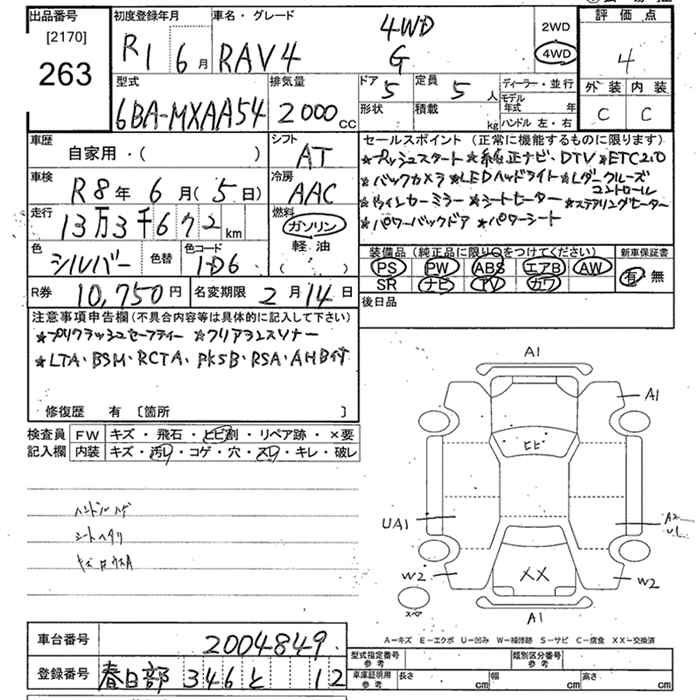 出品番号 初度登録年月 車名・グレード 評価点
[2170]
263
R1 6月 RAV4 4WD G
2WD
4WD
4
型式 排気量 ドア 定員 ディーラー・並行
6BA-MXAA54 2000cc 5 5人
形状 積載 kg
モデル年式 年
ハンドル 左・右
外装 内装
C C
車歴 シフト
自家用・( ) AT
車検 冷房
R8年6月(5日) AAC
走行 燃料
13万3千672km ガソリン
軽油
( )
色 色替 色コード
シルバー 1D6
R券 10,750円 名変期限 2月14日
セールスポイント(正常に機能するものに限ります)
★プッシュスタート ★純正ナビ・DTV ★ETC2.0
★バックカメラ ★LEDヘッドライト ★Lダークルーズコントロール
★ドライインカーミラー ★シートヒーター ★ステアリングヒーター
★パワーバックドア ★パワーシート
装備品(純正品に限り○をつけてください) 新車保証書
PS PW ABS エアB AW
SR ナビ TV カワ
有・無
後日品
注意事項申告欄(不具合内容等は具体的に記入して下さい)
★プリクラッシュセーフティー ★クリアランスソナー
★LTA・BSM・RCTA・PKSB・RSA・AHB付
修復歴 有 〔箇所 〕
検査員 FW キズ・飛石・ヒビ割・リペア跡・×要
記入欄 内装 キズ・汚れ・コゲ・穴・スレ・キレ・破レ
ハンドルハゲ
シートヘタリ
A1
A1
ヒビ
UA1
A2
UL
XX
W2
W2
スペア
A1
A-キズ E-エクボ U-凹み W-補修跡 S-サビ C-腐食 XX-交換済
車台番号 2004849
登録番号 春日部 346 と 12
型式指定番号 参考 類別区分番号 参考
車庫証明用 参考 長さ cm 幅 cm 高さ cm